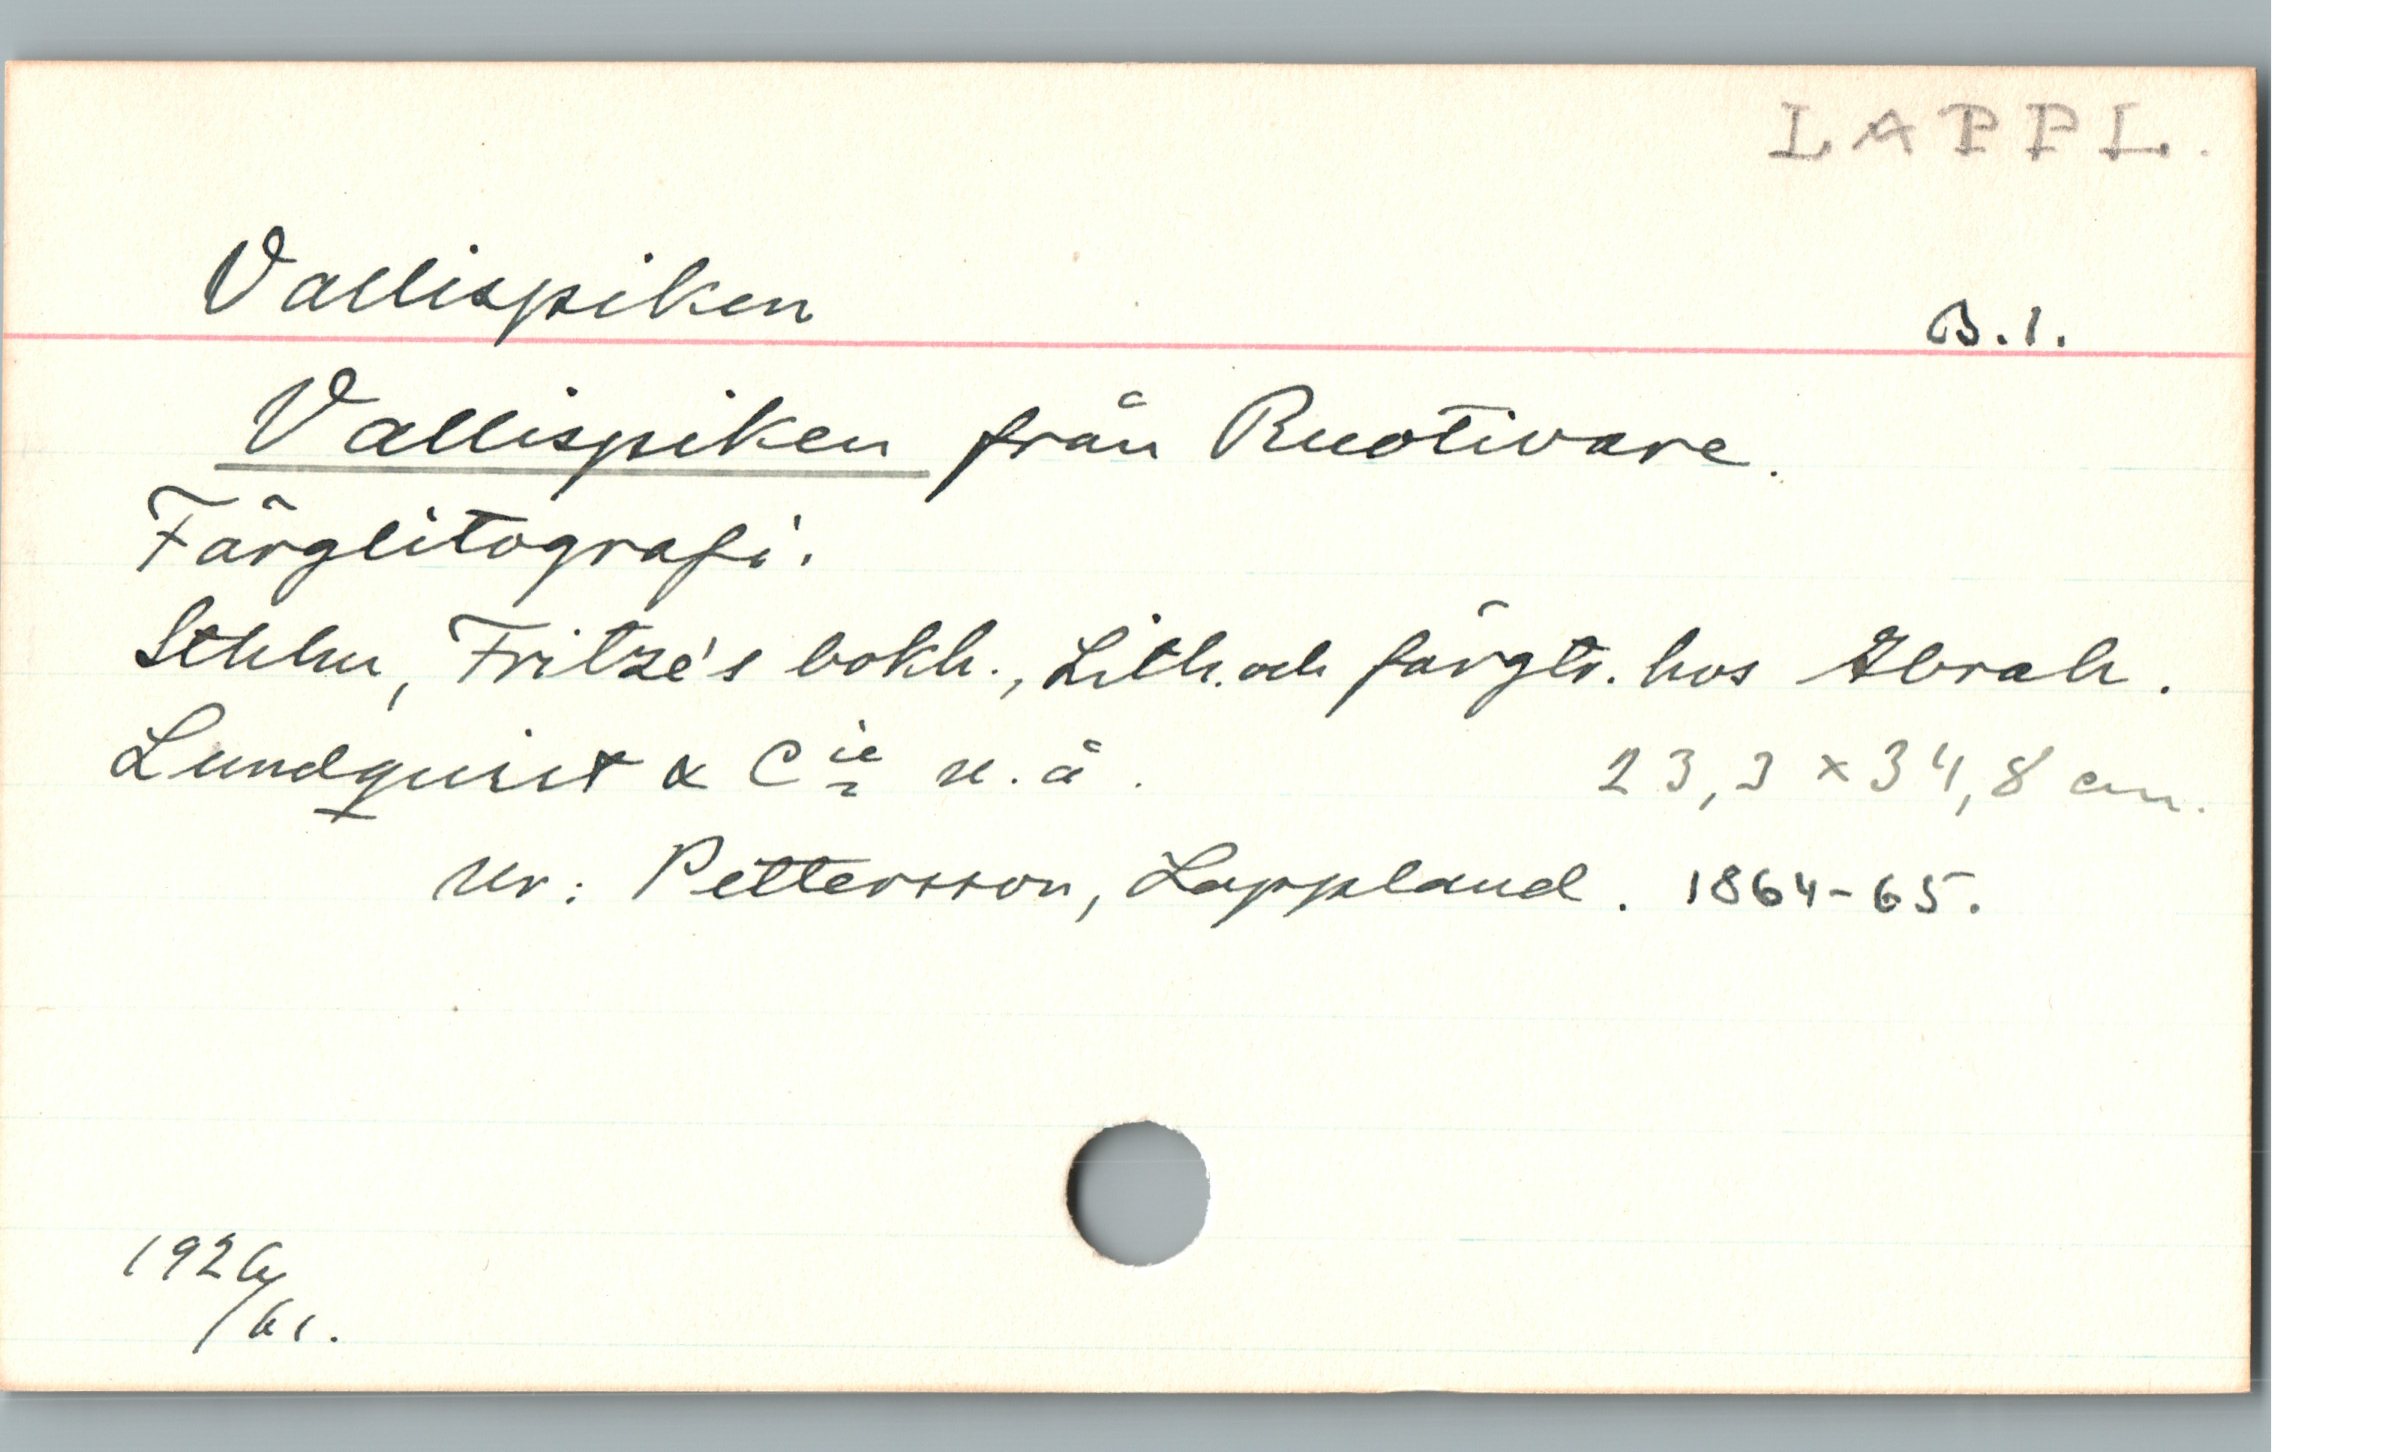 LAPPL.
Vallispiken
B.1.
Vallispiken från Ruotivare.
Färglitografi.
Sthlm, Fritze's bokh., Lith. och färgtr. hos Abrah.
Lundquist & Cie u.å. 23,3 x 34,8 cm.
Ur: Pettersson, Lappland. 1864-65.
/61.